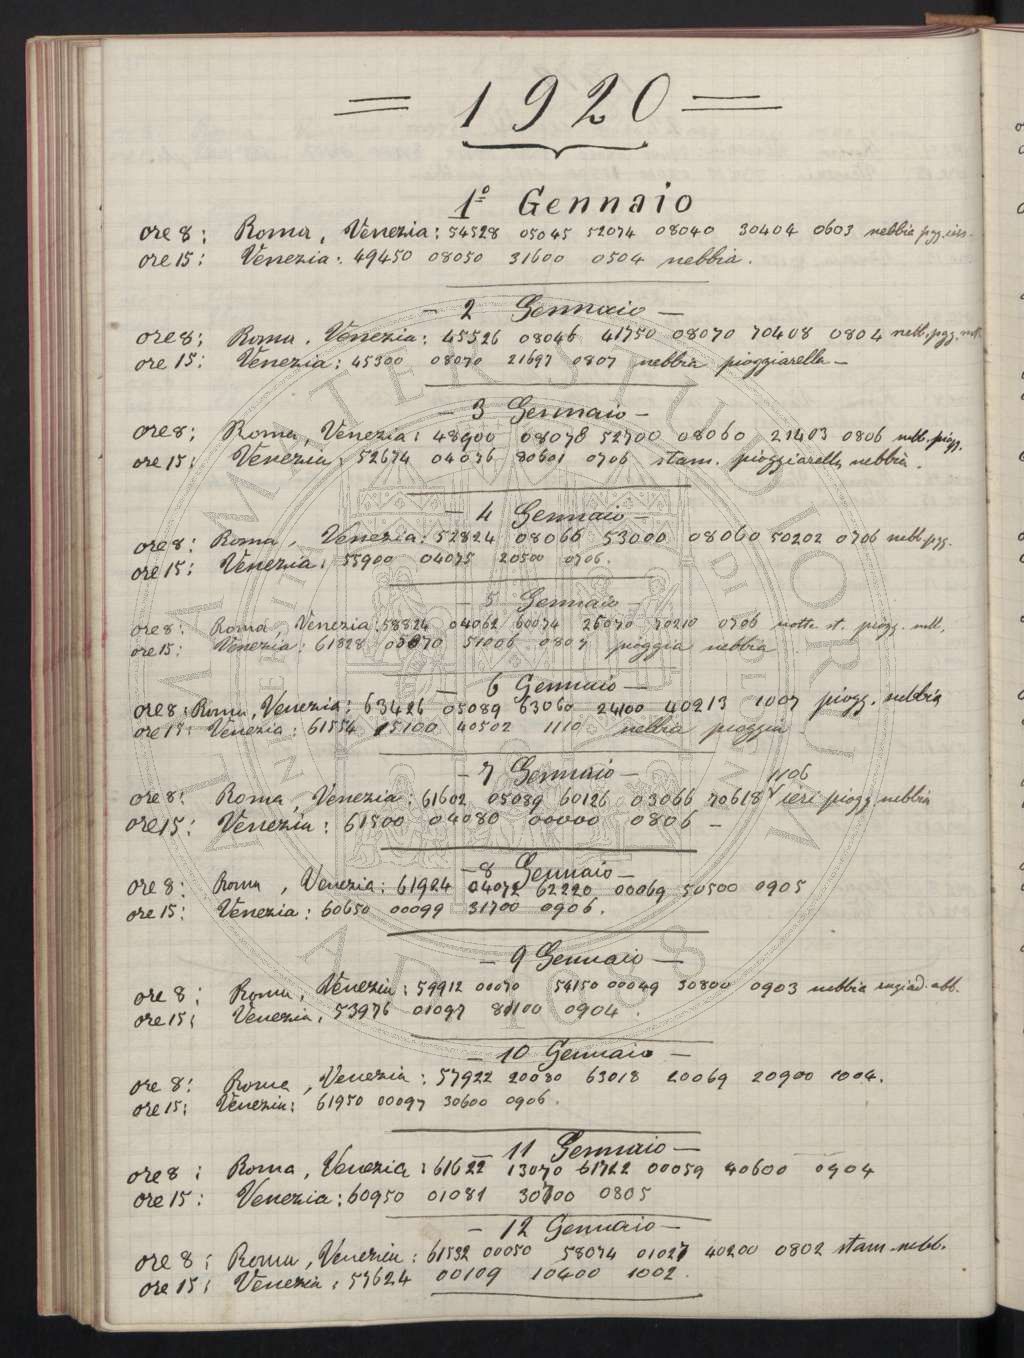 = 1920 =
1º Gennaio
ore 8: Roma, Venezia: 54528 05045 52074 08040 30404 0603 nebbia
ore 15: Venezia: 49450 08050 31600 0504 nebbia.
- 2 Gennaio -
ore 8: Roma, Venezia: 45526 08046 41750 08070 70408 0804 nebb. pgg.
ore 15: Venezia: 45300 08070 21697 0807 nebbia pioggiarella -
- 3 Gennaio -
ore 8: Roma, Venezia: 48900 08078 52700 08060 21403 0806 nebb. piogg.
ore 15: Venezia: 52674 04076 80601 0706 stam. pioggiarella nebbia.
- 4 Gennaio -
ore 8: Roma, Venezia: 52824 08066 53000 08060 50202 0706 nebb. pgg.
ore 15: Venezia: 55900 04075 20500 0706.
- 5 Gennaio -
ore 8: Roma, Venezia: 58824 04062 60074 26070 70210 0706 notte st. piogg. nebb.
ore 15: Venezia: 61828 05070 51006 0807 pioggia nebbia
6 Gennaio -
ore 8: Roma, Venezia: 63426 05089 63060 24100 40213 1007 piogg. nebbia
ore 15: Venezia: 61554 15100 40502 1110 nebbia pioggia
- 7 Gennaio -
1106
ore 8: Roma, Venezia: 61602 05089 60126 03066 70618 ieri piogg nebbia
ore 15: Venezia: 61500 04080 00000 0806 -
- 8 Gennaio -
ore 8: Roma, Venezia: 61924 04072 62220 00069 50500 0905
ore 15: Venezia: 60650 00099 31700 0906.
- 9 Gennaio -
ore 8: Roma, Venezia: 59912 00070 54150 00049 30800 0903 nebbia rugiad. abb.
ore 15: Venezia: 53976 01097 81100 0904.
- 10 Gennaio -
ore 8: Roma, Venezia: 57922 20080 63018 20069 20900 1004.
ore 15: Venezia: 61950 00097 30600 0906.
- 11 Gennaio -
ore 8: Roma, Venezia: 61622 13070 61722 00059 40600 0904
ore 15: Venezia: 60950 01081 30700 0805
- 12 Gennaio -
ore 8: Roma, Venezia: 61532 00050 58074 01027 40200 0802 stam. nebb.
ore 15: Venezia: 57624 00109 10400 1002.
ALMA MATER STUDIORUM
A.D. 1088